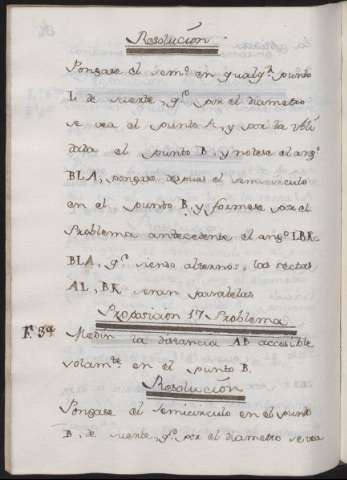 Resolución
Pongase el sem.º en qualq.ª punto
L de suerte, q.e por el diametro
se vea el punto A, y por la Ali
dada el punto B y notese el ang.º
BLA, pongase despues el semicirculo
en el punto B, y formese por el
Problema antecedente el ang.º LBR=
BLA, q.e siendo alternos, las rectas
AL, BR seran paralelas
Proposición 17 Problema
F. 39 Medir la distancia AB accesible
solam.te en el punto B.
Resolución
Pongase el semicirculo en el punto
B, de suerte, q.e por el diametro se vea